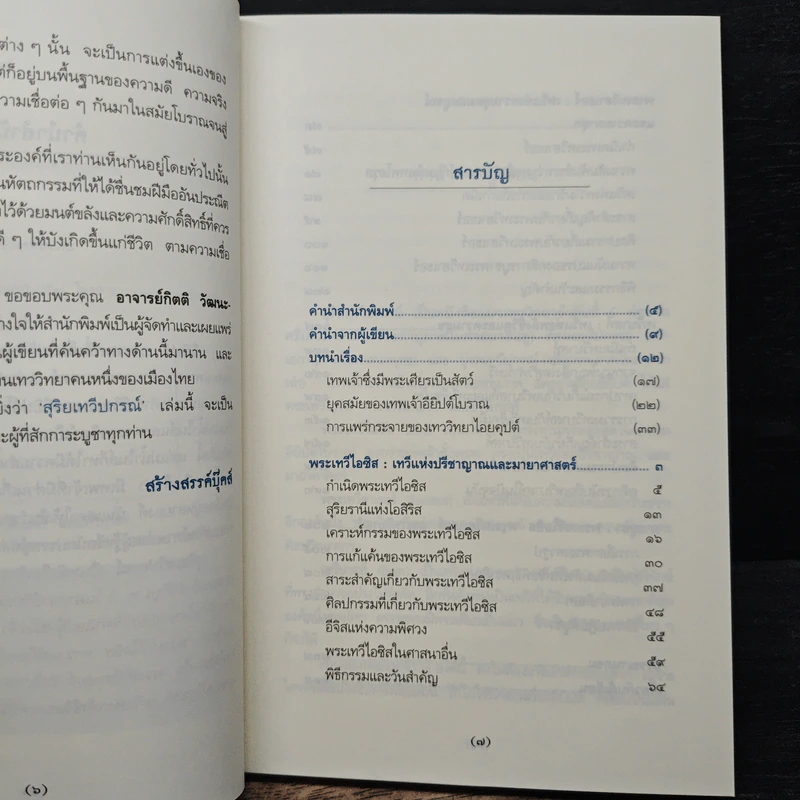 ต่าง ๆ นั้น จะเป็นการแต่งขึ้นเองของ
ต่ก็อยู่บนพื้นฐานของความดี ความจริง
วามเชื่อต่อ ๆ กันมาในสมัยโบราณจนสู่
ระองค์ที่เราท่านเห็นกันอยู่โดยทั่วไปนั้น
นหัตถกรรมที่ให้ได้ชื่นชมฝีมืออันประณีต
ไว้ด้วยมนต์ขลังและความศักดิ์สิทธิ์ที่ควร
ดี ๆ ให้บังเกิดขึ้นแก่ชีวิต ตามความเชื่อ
ขอขอบพระคุณ อาจารย์กิตติ วัฒนะ-
างใจให้สำนักพิมพ์เป็นผู้จัดทำและเผยแพร่
นผู้เขียนที่ค้นคว้าทางด้านนี้มานาน และ
านเทววิทยาคนหนึ่งของเมืองไทย
ยิ่งว่า 'สุริยเทวีปกรณ์' เล่มนี้ จะเป็น
ะผู้ที่สักการะบูชาทุกท่าน
สร้างสรรค์บุ๊คส์
(๖)
สารบัญ
คำนำสำนักพิมพ์ (๕)
คำนำจากผู้เขียน (๙)
บทนำเรื่อง (๑๒)
เทพเจ้าซึ่งมีพระเศียรเป็นสัตว์ (๑๗)
ยุคสมัยของเทพเจ้าอียิปต์โบราณ (๒๒)
การแพร่กระจายของเทววิทยาไอยคุปต์ (๓๓)
พระเทวีไอซิส : เทวีแห่งปรีชาญาณและมายาศาสตร์ ๓
กำเนิดพระเทวีไอซิส ๕
สุริยรานีแห่งโอสิริส ๑๓
เคราะห์กรรมของพระเทวีไอซิส ๑๖
การแก้แค้นของพระเทวีไอซิส ๓๐
สาระสำคัญเกี่ยวกับพระเทวีไอซิส ๓๗
ศิลปกรรมที่เกี่ยวกับพระเทวีไอซิส ๔๘
อีจิสแห่งความพิศวง ๕๕
พระเทวีไอซิสในศาสนาอื่น ๕๙
พิธีกรรมและวันสำคัญ ๖๔
(๗)